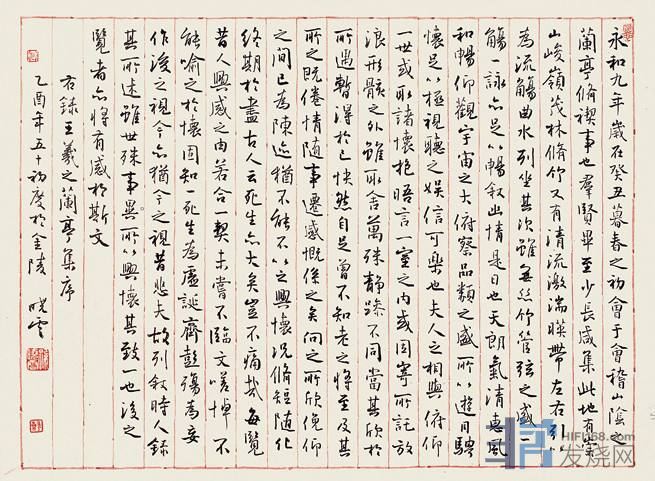 永和九年歲在癸丑暮春之初會于會稽山陰之
蘭亭脩禊事也羣賢畢至少長咸集此地有崇
山峻嶺茂林脩竹又有清流激湍暎帶左右引以
為流觴曲水列坐其次雖無絲竹管弦之盛一
觴一詠亦足以暢敘幽情是日也天朗氣清惠風
和暢仰觀宇宙之大俯察品類之盛所以遊目騁
懷足以極視聽之娛信可樂也夫人之相與俯仰
一世或取諸懷抱晤言一室之內或因寄所託放
浪形骸之外雖取舍萬殊靜躁不同當其欣於
所遇暫得於己快然自足曾不知老之將至及其
所之既倦情隨事遷感慨係之矣向之所欣俛仰
之間已為陳迹猶不能不以之興懷況脩短隨化
終期於盡古人云死生亦大矣豈不痛哉每覽
昔人興感之由若合一契未嘗不臨文嗟悼不
能喻之於懷固知一死生為虛誕齊彭殤為妄
作後之視今亦猶今之視昔悲夫故列敘時人錄
其所述雖世殊事異所以興懷其致一也後之
覽者亦將有感於斯文
右錄王羲之蘭亭集序
乙酉年五十初度於金陵 曉雲
HIFI168.com
发烧网